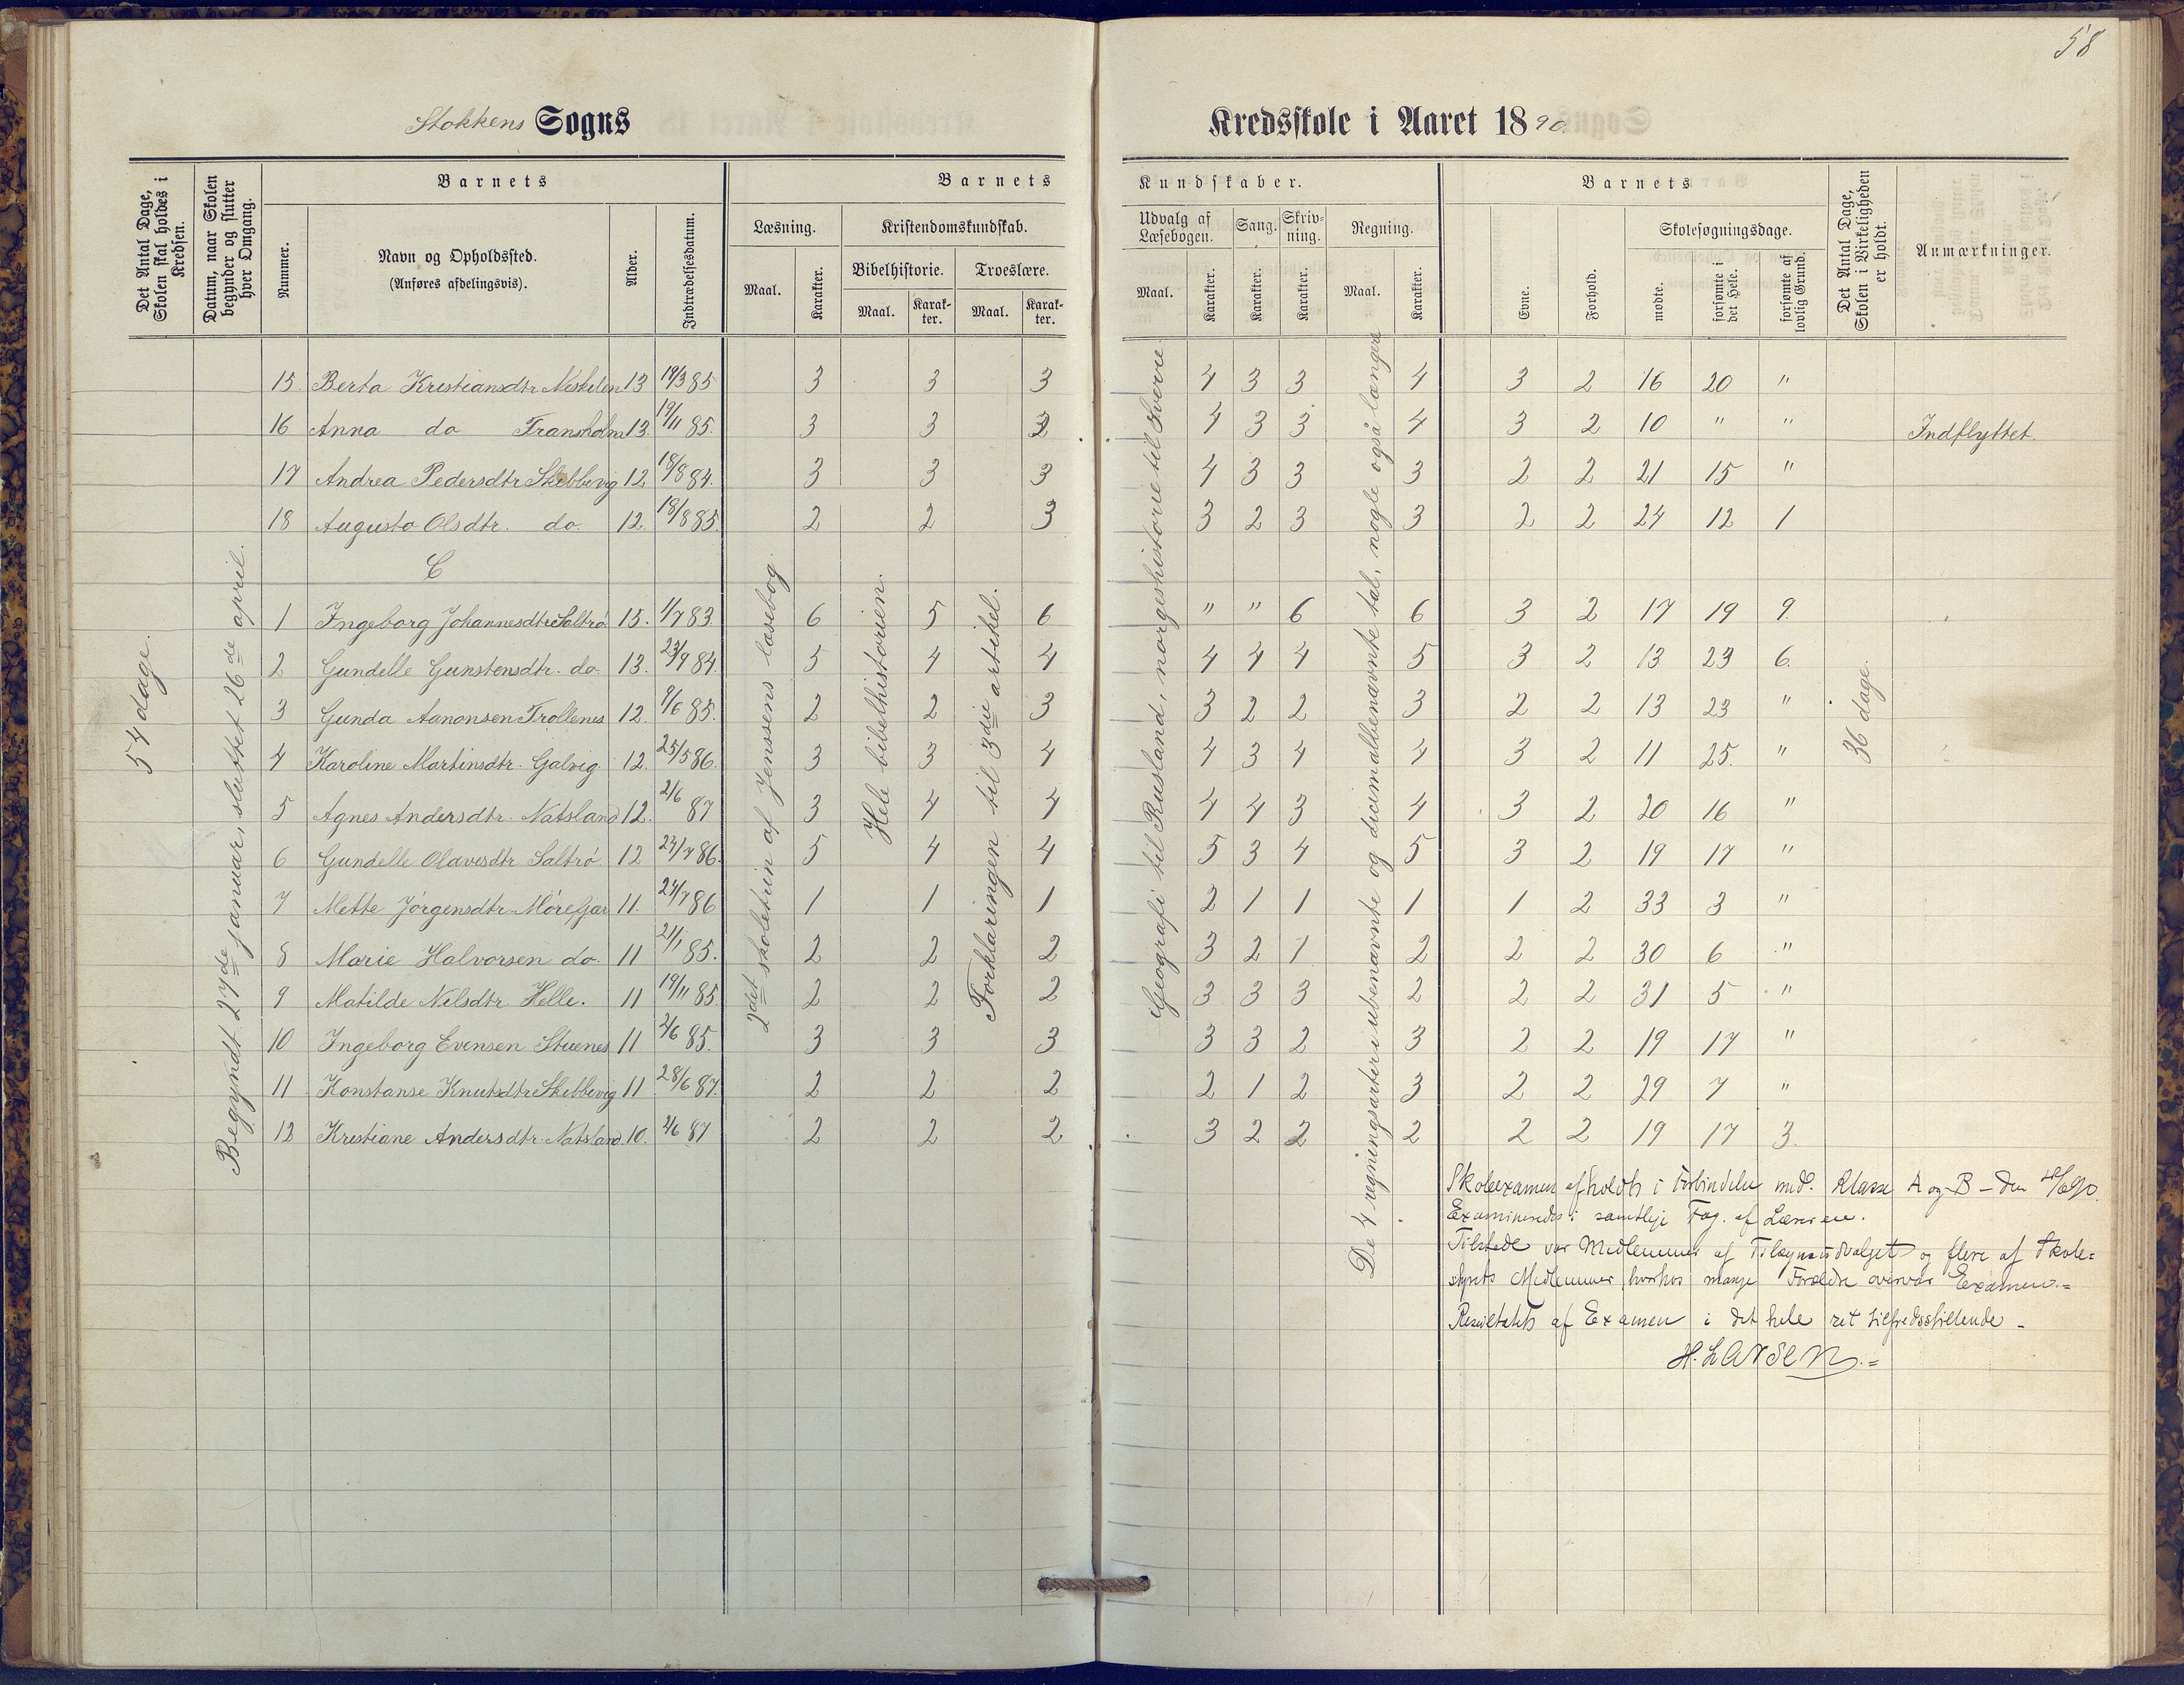 58
Stokkens Sogns
Kredsskole i Aaret 1890.
Det Antal Dage, Skolen skal holdes i Kredsen.
Datum, naar Skolen begynder og slutter hver Omgang.
Barnets
Nummer.
Navn og Opholdssted.
(Anføres afdelingsvis).
Alder.
Indtrædelsesdatum.
Barnets
Læsning.
Kristendomskundskab.
Bibelhistorie.
Troeslære.
Maal.
Karakter.
Maal.
Karak-
ter.
Maal.
Karak-
ter.
Kundskaber.
Udvalg af
Læsebogen.
Sang.
Skriv-
ning.
Regning.
Maal.
Karakter.
Karakter.
Karakter.
Maal.
Karakter.
Barnets
Evne.
Forhold.
Skolesøgningsdage.
mødte.
forsømte i det Hele.
forsømte af lovlig Grund.
Det Antal Dage, Skolen i Virkeligheden er holdt.
Anmærkninger.
54 dage.
Begyndt 27de januar, sluttet 26de april.
2det skoletrin af Jenssens læsebog.
Hele bibelhistorien.
Forklaringen til 3die artikel.
Geografi til Rusland, norgeshistorie til Sverre.
De 4 regningsarter i ubenævnte og decimalbenævnte tal, nogle også længere
36 dage.
15 Berta Kristiansdtr Neskilen 13 19/3 85 3 3 3 4 3 3 4 3 2 16 20 "
16 Anna do Fransholm 13. 19/11 85. 3 3 3 4 3 3 4 3 2 10 " " Indflyttet.
17 Andrea Pedersdtr Skibbevig 12 18/8 84. 3 3 3 4 3 3 3 2 2 21 15 "
18 Augusta Olsdtr. do. 12. 18/8 85. 2 2 3 3 2 3 3 2 2 24 12 1
C
1 Ingeborg Johannesdtr Saltrø 15. 1/7 83. 6 5 6 " " 6 6 3 2 17 19 9.
2 Gundelle Gunstensdtr. do. 13. 23/9 84. 5 4 4 4 4 4 5 3 2 13 23 6.
3 Gunda Aanonsen Trollenes 12. 9/6 85. 2 2 3 3 2 2 3 2 2 13 23 "
4 Karoline Martinsdtr. Galvig 12. 25/5 86. 3 3 4 4 3 4 4 3 2 11 25. "
5 Agnes Andersdtr. Natsland 12. 2/6 87 3 4 4 4 4 3 4 3 2 20 16 "
6 Gundelle Olavesdtr Saltrø 12 24/7 86. 5 4 4 5 3 4 5 3 2 19 17 "
7 Mette Jørgensdtr. Mørefjær 11. 24/7 86 1 1 1 2 1 1 1 1 2 33 3 "
8 Marie Halvorsen do. 11 21/1 85. 2 2 2 3 2 1 2 2 2 30 6 "
9 Matilde Nilsdtr. Helle. 11 19/11 85. 2 2 2 3 3 3 2 2 2 31 5 "
10 Ingeborg Evensen Stuenes 11 2/6 85. 3 3 3 3 3 2 3 2 2 19 17 "
11 Konstanse Knutsdtr Skibbevig 11 28/6 87. 2 2 2 2 1 2 3 2 2 29 7 "
12 Kristiane Andersdtr. Natsland. 10. 2/6 87 2 2 2 3 2 2 2 2 2 19 17 3.
Skoleexamen afholdts i Forbindelse med. Klasse A og B – den /6 90.
Examineredes i samtlige Fag. af Læreren.
Tilstede var Medlemmer af Tilsynsudvalget og flere af Skole=
styrets Medlemmer, hvorhos mange Forældre overvar Examen.=
Resultatets af Examen i det hele ret tilfredsstillende –
H. Larsen.=